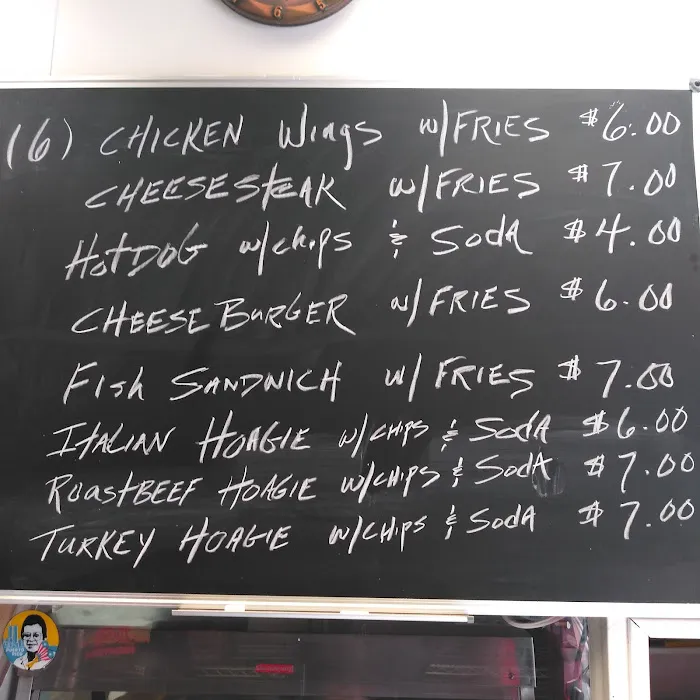 (6) CHICKEN Wings w/FRIES $6.00
CHEESESTEAK w/FRIES $7.00
HOTDOG w/chips & SODA $4.00
CHEESE BURGER w/FRIES $6.00
FISh SANDWICH w/ FRIES $7.00
ITALIAN HOAGIE w/CHIPS & SodA $6.00
ROAStBEEF HOAGIE w/CHIPS & SodA $7.00
TURKEY HOAGIE w/CHIPS & SodA $7.00